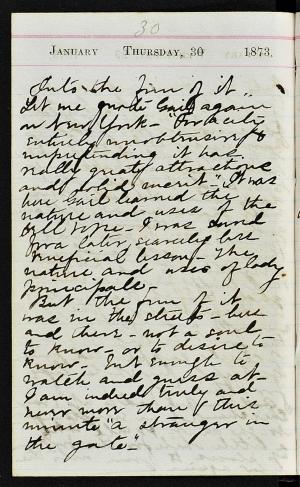 30
January Thursday, 30 1873.
Into the fun of it.
Let me quote Gail again
on New York - "For a city
entirely unobtrusive &
unpretending it has
really great attractions
and solid merit." It was
here Gail learned the
nature and uses of the
bell rope - I was saved
for a later, scarcely less
beneficial lesson - The
nature and uses of lady
principals.
But the fun of it
was in the streets - here
and there - not a soul
to know - or to desire to
know - but enough to
watch and guess at.
I am indeed truly and
never more than this
minute "a stranger in
the gate" -